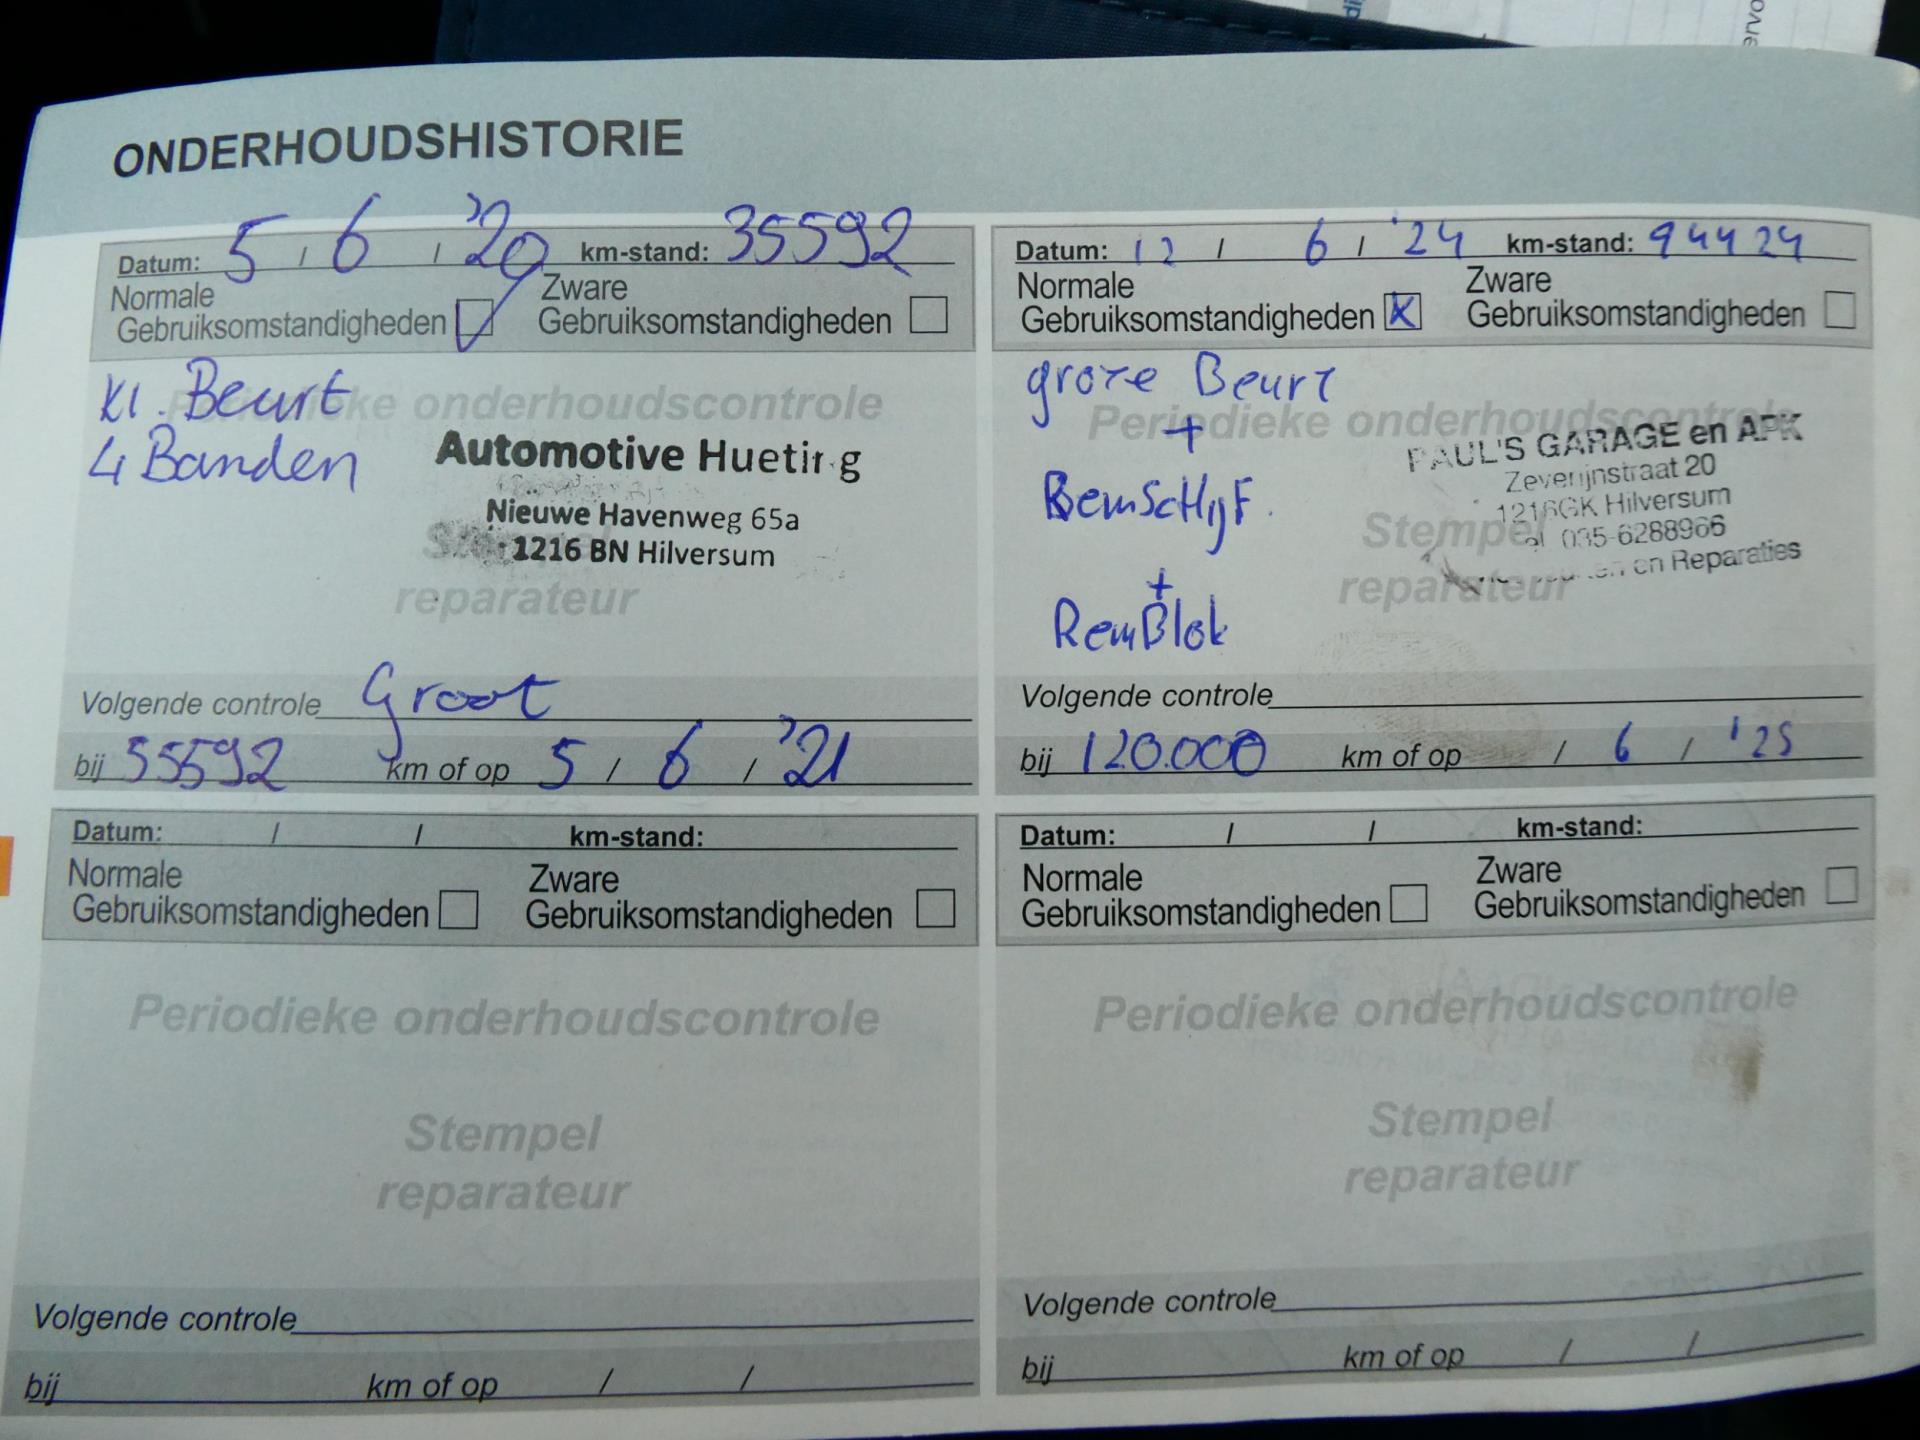 ONDERHOUDSHISTORIE
Datum: 5 / 6 / '20 km-stand: 35592
Normale Zware
Gebruiksomstandigheden Gebruiksomstandigheden
Kl. Beurt
4 Banden
Periodieke onderhoudscontrole
Automotive Hueting
Nieuwe Havenweg 65a
1216 BN Hilversum
Stempel
reparateur
Volgende controle Groot
bij 55592 km of op 5 / 6 / '21
Datum: 12 / 6 / '24 km-stand: 94424
Normale Zware
Gebruiksomstandigheden X Gebruiksomstandigheden
grote Beurt
+
RemScHijF.
+
RemBlok
Periodieke onderhoudscontrole
PAUL'S GARAGE en APK
Zeverijnstraat 20
1216GK Hilversum
035-6288966
en Reparaties
Stempel
reparateur
Volgende controle
bij 120.000 km of op / 6 / '25
Datum: / / km-stand:
Normale Zware
Gebruiksomstandigheden Gebruiksomstandigheden
Periodieke onderhoudscontrole
Stempel
reparateur
Volgende controle
bij km of op / /
Datum: / / km-stand:
Normale Zware
Gebruiksomstandigheden Gebruiksomstandigheden
Periodieke onderhoudscontrole
Stempel
reparateur
Volgende controle
bij km of op / /